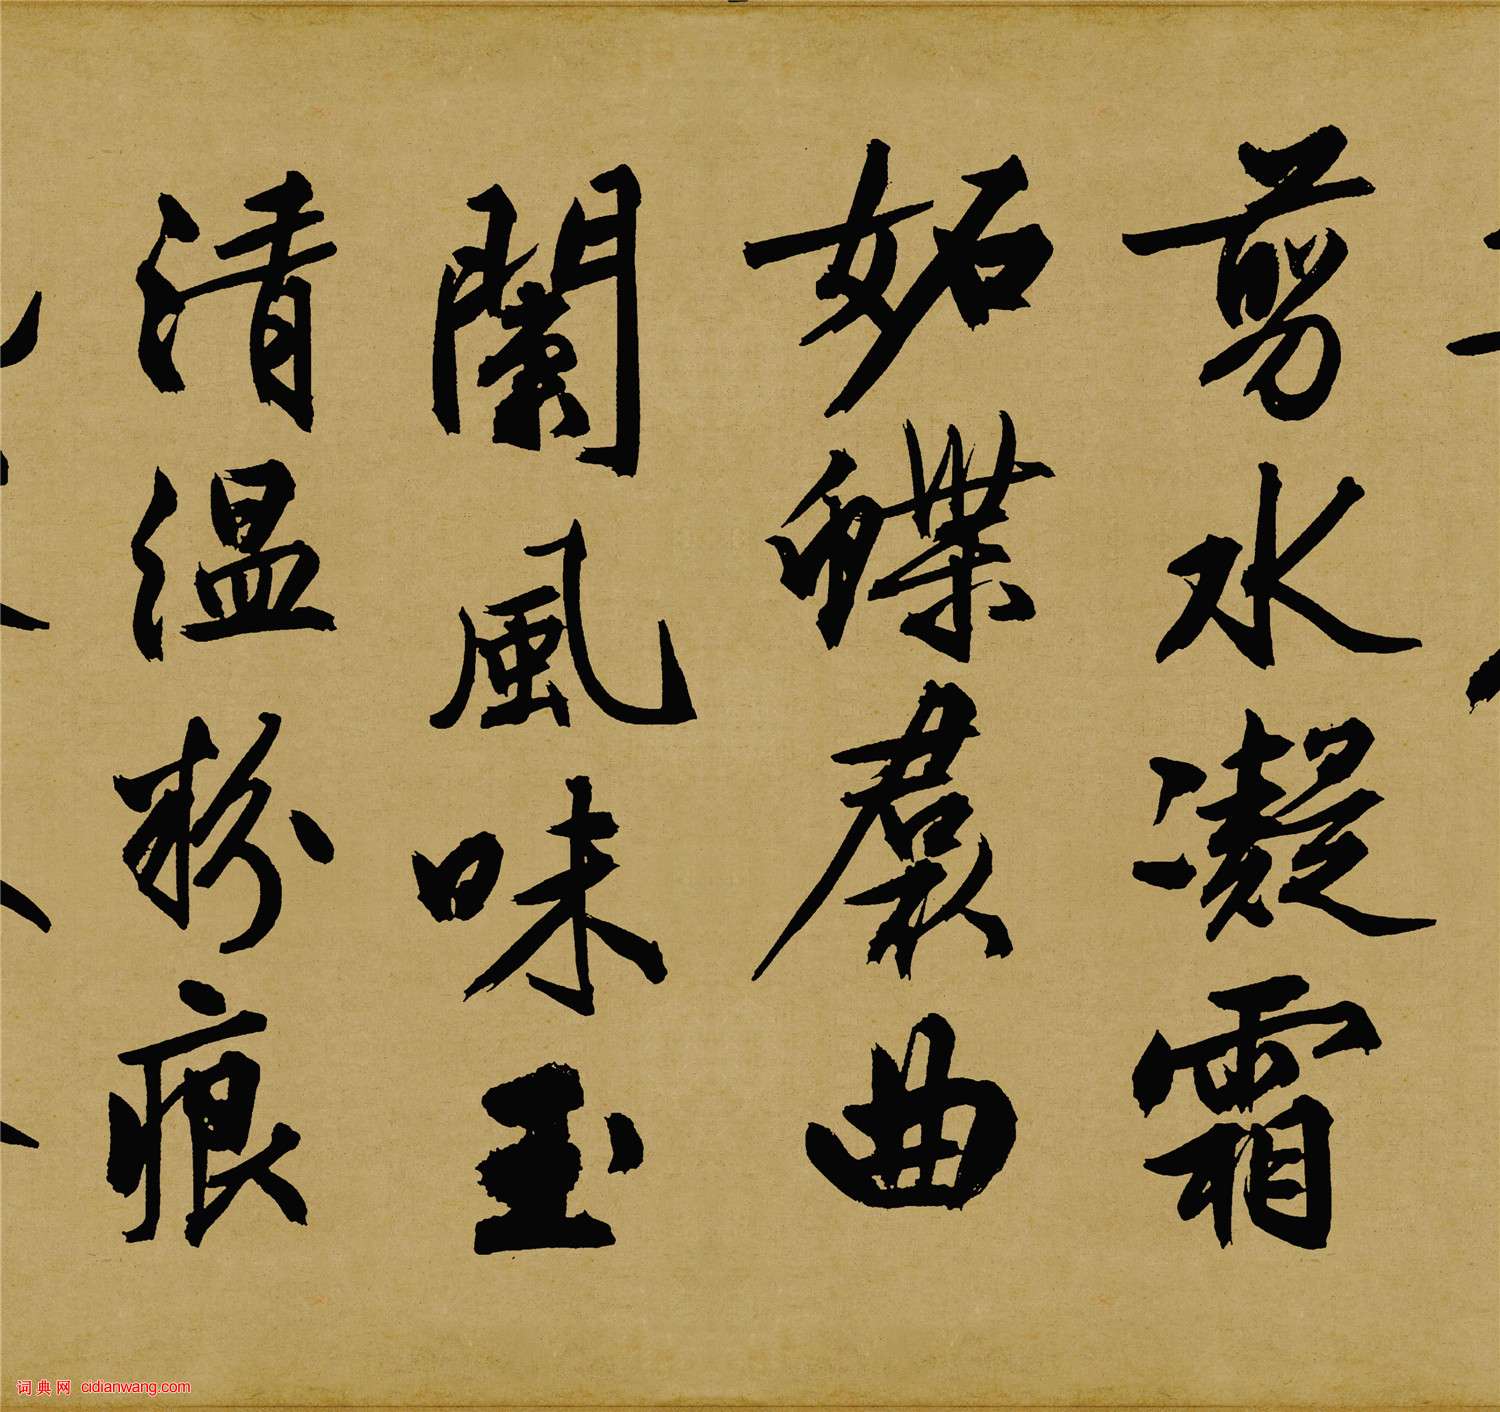 剪水凝霜
妬蝶裠曲
闌風味玉
清温粉痕
词典网 cidianwang.com